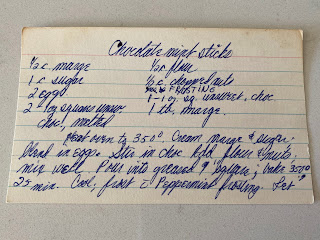 Chocolate mint sticks
½ c. marge ½ c. flour
1 c sugar ½ c. chopped nuts
2 eggs FROSTING
2 - 1 oz squares unsw. 1 - 1 oz. sq. unsweet. choc.
choc, melted 1 tb. marge.
Heat oven to 350°. Cream marge & sugar.
blend in eggs. Stir in choc. Add flour & nuts,
mix well. Pour into greased 9" square; bake 350°
25 min. Cool, frost c Peppermint frosting. Let